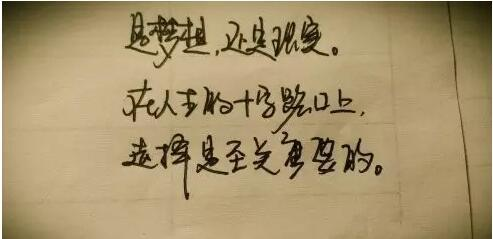 是梦想,还是现实。
在人生的十字路口上,
选择是至关重要的。